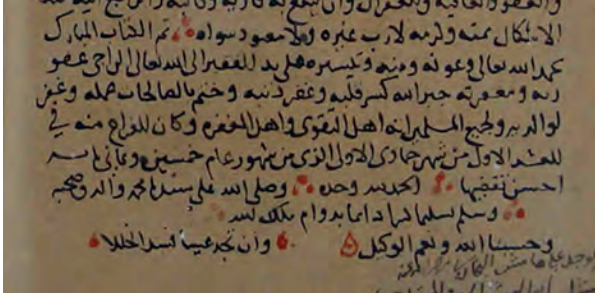 الاتكال بمنه وكرمه لا رب غيره ولا معبود سواه تم الكتاب المبارك
بحمد الله تعالى وعونه ومنه وتيسيره على يد الفقير الى الله تعالى الراجى عفو
ربه ومغفرته جبر الله كسر قلبه وغفر ذنبه وختم بالصالحات عمله وغفر
لوالديه ولجميع المسلمين انه اهل التقوى واهل المغفرة وكان الفراغ منه في
العشر الاول من شهر جمادى الاولى الذى من شهور عام خمسين وثمانى مايه
احسن تقضيها الحمد لله وحده وصلى الله على سيدنا محمد واله وصحبه
وسلم تسليما كثيرا دايما بدوام ملك الله
وحسبنا الله ونعم الوكيل وان تجد عيبا فسد الخللا